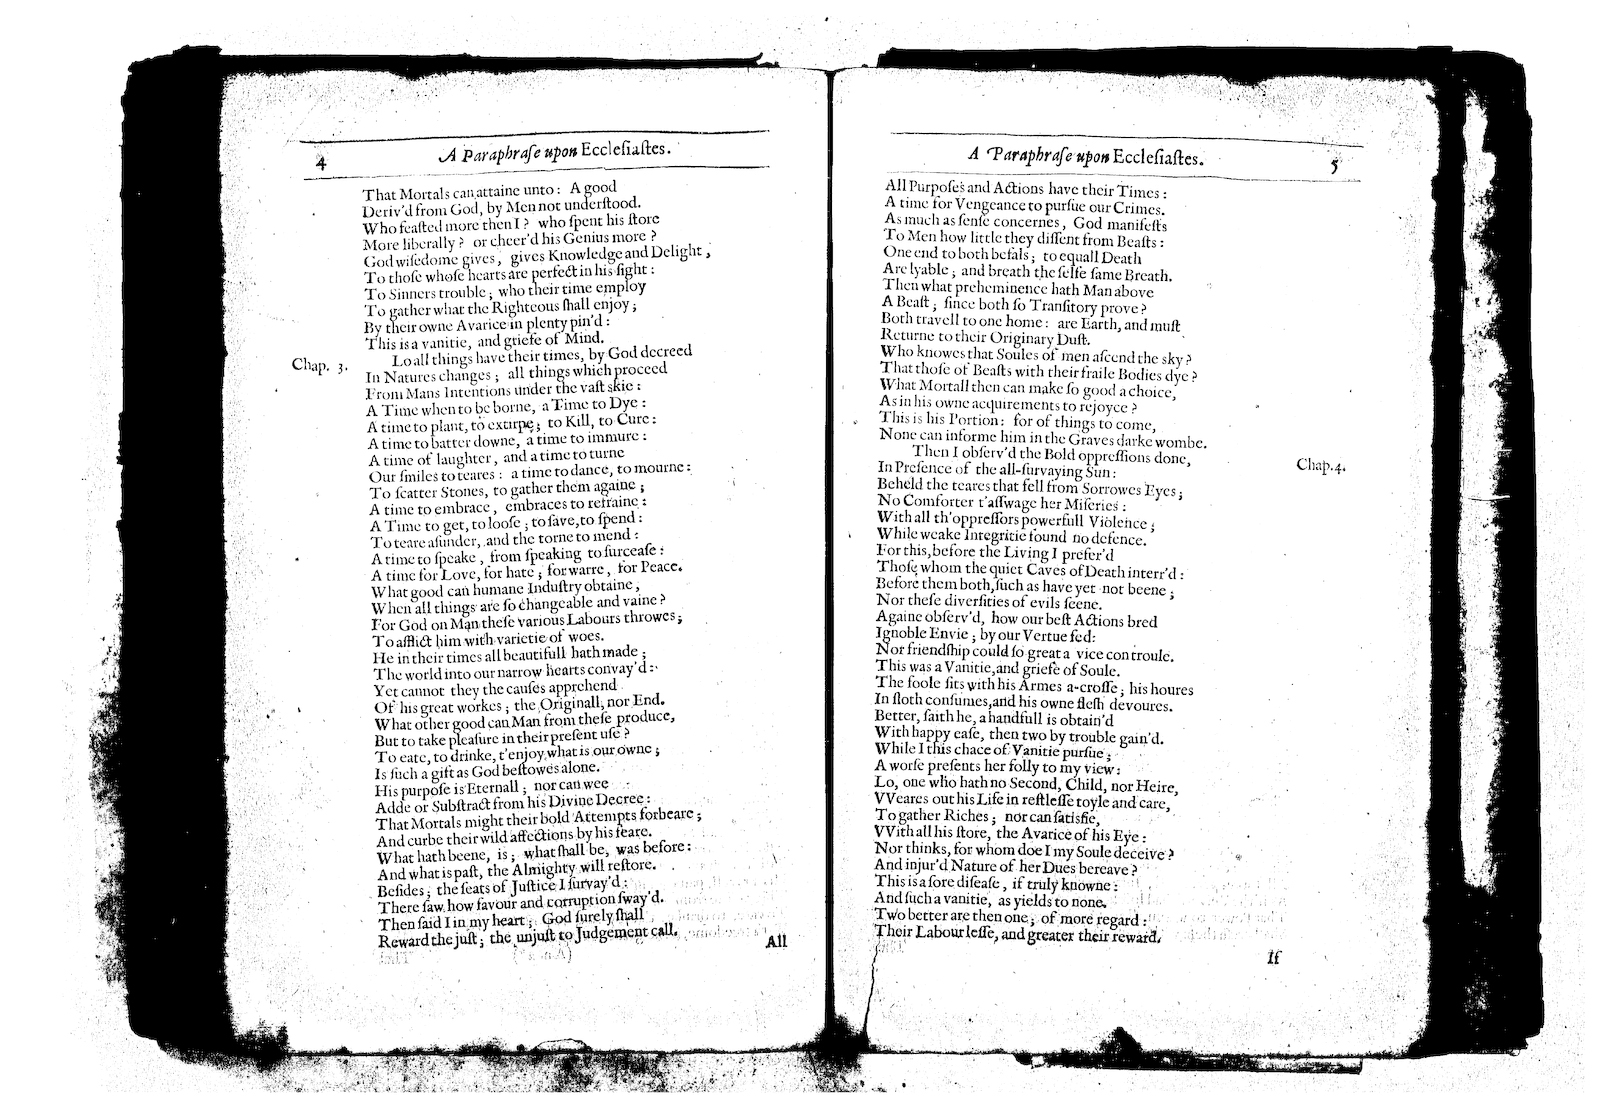 4
A Paraphraſe upon Eccleſiaſtes.
That Mortals can attaine unto: A good
Deriv'd from God, by Men not underſtood.
Who feaſted more then I? who ſpent his ſtore
More liberally? or cheer'd his Genius more?
God wiſedome gives, gives Knowledge and Delight,
To thoſe whoſe hearts are perfect in his ſight:
To Sinners trouble; who their time employ
To gather what the Righteous ſhall enjoy;
By their owne Avarice in plenty pin'd:
This is a vanitie, and griefe of Mind.
Chap. 3.
Lo all things have their times, by God decreed
In Natures changes; all things which proceed
From Mans Intentions under the vaſt skie:
A Time when to be borne, a Time to Dye:
A time to plant, to extirpe; to Kill, to Cure:
A time to batter downe, a time to immure:
A time of laughter, and a time to turne
Our ſmiles to teares: a time to dance, to mourne:
To ſcatter Stones, to gather them againe;
A time to embrace, embraces to refraine:
A Time to get, to looſe; to ſave, to ſpend:
To teare aſunder, and the torne to mend:
A time to ſpeake, from ſpeaking to ſurceaſe:
A time for Love, for hate; for warre, for Peace.
What good can humane Induſtry obtaine,
When all things are ſo changeable and vaine?
For God on Man theſe various Labours throwes;
To afflict him with varietie of woes.
He in their times all beautifull hath made;
The world into our narrow hearts convay'd:
Yet cannot they the cauſes apprehend
Of his great workes; the Originall, nor End.
What other good can Man from theſe produce,
But to take pleaſure in their preſent uſe?
To eate, to drinke, t'enjoy what is our owne;
Is ſuch a gift as God beſtowes alone.
His purpoſe is Eternall; nor can wee
Adde or Subſtract from his Divine Decree:
That Mortals might their bold Attempts forbeare;
And curbe their wild affections by his feare.
What hath beene, is; what ſhall be, was before:
And what is paſt, the Almighty will reſtore.
Beſides; the ſeats of Juſtice I ſurvay'd:
There ſaw how favour and corruption ſway'd.
Then ſaid I in my heart; God ſurely ſhall
Reward the juſt; the unjuſt to Judgement call.
All
A Paraphraſe upon Eccleſiaſtes.
5
All Purpoſes and Actions have their Times:
A time for Vengeance to purſue our Crimes.
As much as ſenſe concernes, God manifeſts
To Men how little they diſſent from Beaſts:
One end to both befals; to equall Death
Are lyable; and breath the ſelfe ſame Breath.
Then what preheminence hath Man above
A Beaſt; ſince both ſo Tranſitory prove?
Both travell to one home: are Earth, and muſt
Returne to their Originary Duſt.
Who knowes that Soules of men aſcend the sky?
That thoſe of Beaſts with their fraile Bodies dye?
What Mortall then can make ſo good a choice,
As in his owne acquirements to rejoyce?
This is his Portion: for of things to come,
None can informe him in the Graves darke wombe.
Chap. 4.
Then I obſerv'd the Bold oppreſſions done,
In Preſence of the all-ſurvaying Sun:
Beheld the teares that fell from Sorrowes Eyes;
No Comforter t'aſſwage her Miſeries:
With all th'oppreſſors powerfull Violence;
While weake Integritie found no defence.
For this, before the Living I prefer'd
Thoſe whom the quiet Caves of Death interr'd:
Before them both, ſuch as have yet not beene;
Nor theſe diverſities of evils ſeene.
Againe obſerv'd, how our beſt Actions bred
Ignoble Envie; by our Vertue fed:
Nor friendſhip could ſo great a vice controule.
This was a Vanitie, and griefe of Soule.
The foole ſits with his Armes a-croſſe; his houres
In ſloth conſumes, and his owne fleſh devoures.
Better, ſaith he, a handfull is obtain'd
With happy eaſe, then two by trouble gain'd.
While I this chace of Vanitie purſue;
A worſe preſents her folly to my view:
Lo, one who hath no Second, Child, nor Heire,
VVeares out his Life in reſtleſſe toyle and care,
To gather Riches; nor can ſatisfie,
VVith all his ſtore, the Avarice of his Eye:
Nor thinks, for whom doe I my Soule deceive?
And injur'd Nature of her Dues bereave?
This is a ſore diſeaſe, if truly knowne:
And ſuch a vanitie, as yields to none.
Two better are then one; of more regard:
Their Labour leſſe, and greater their reward.
If